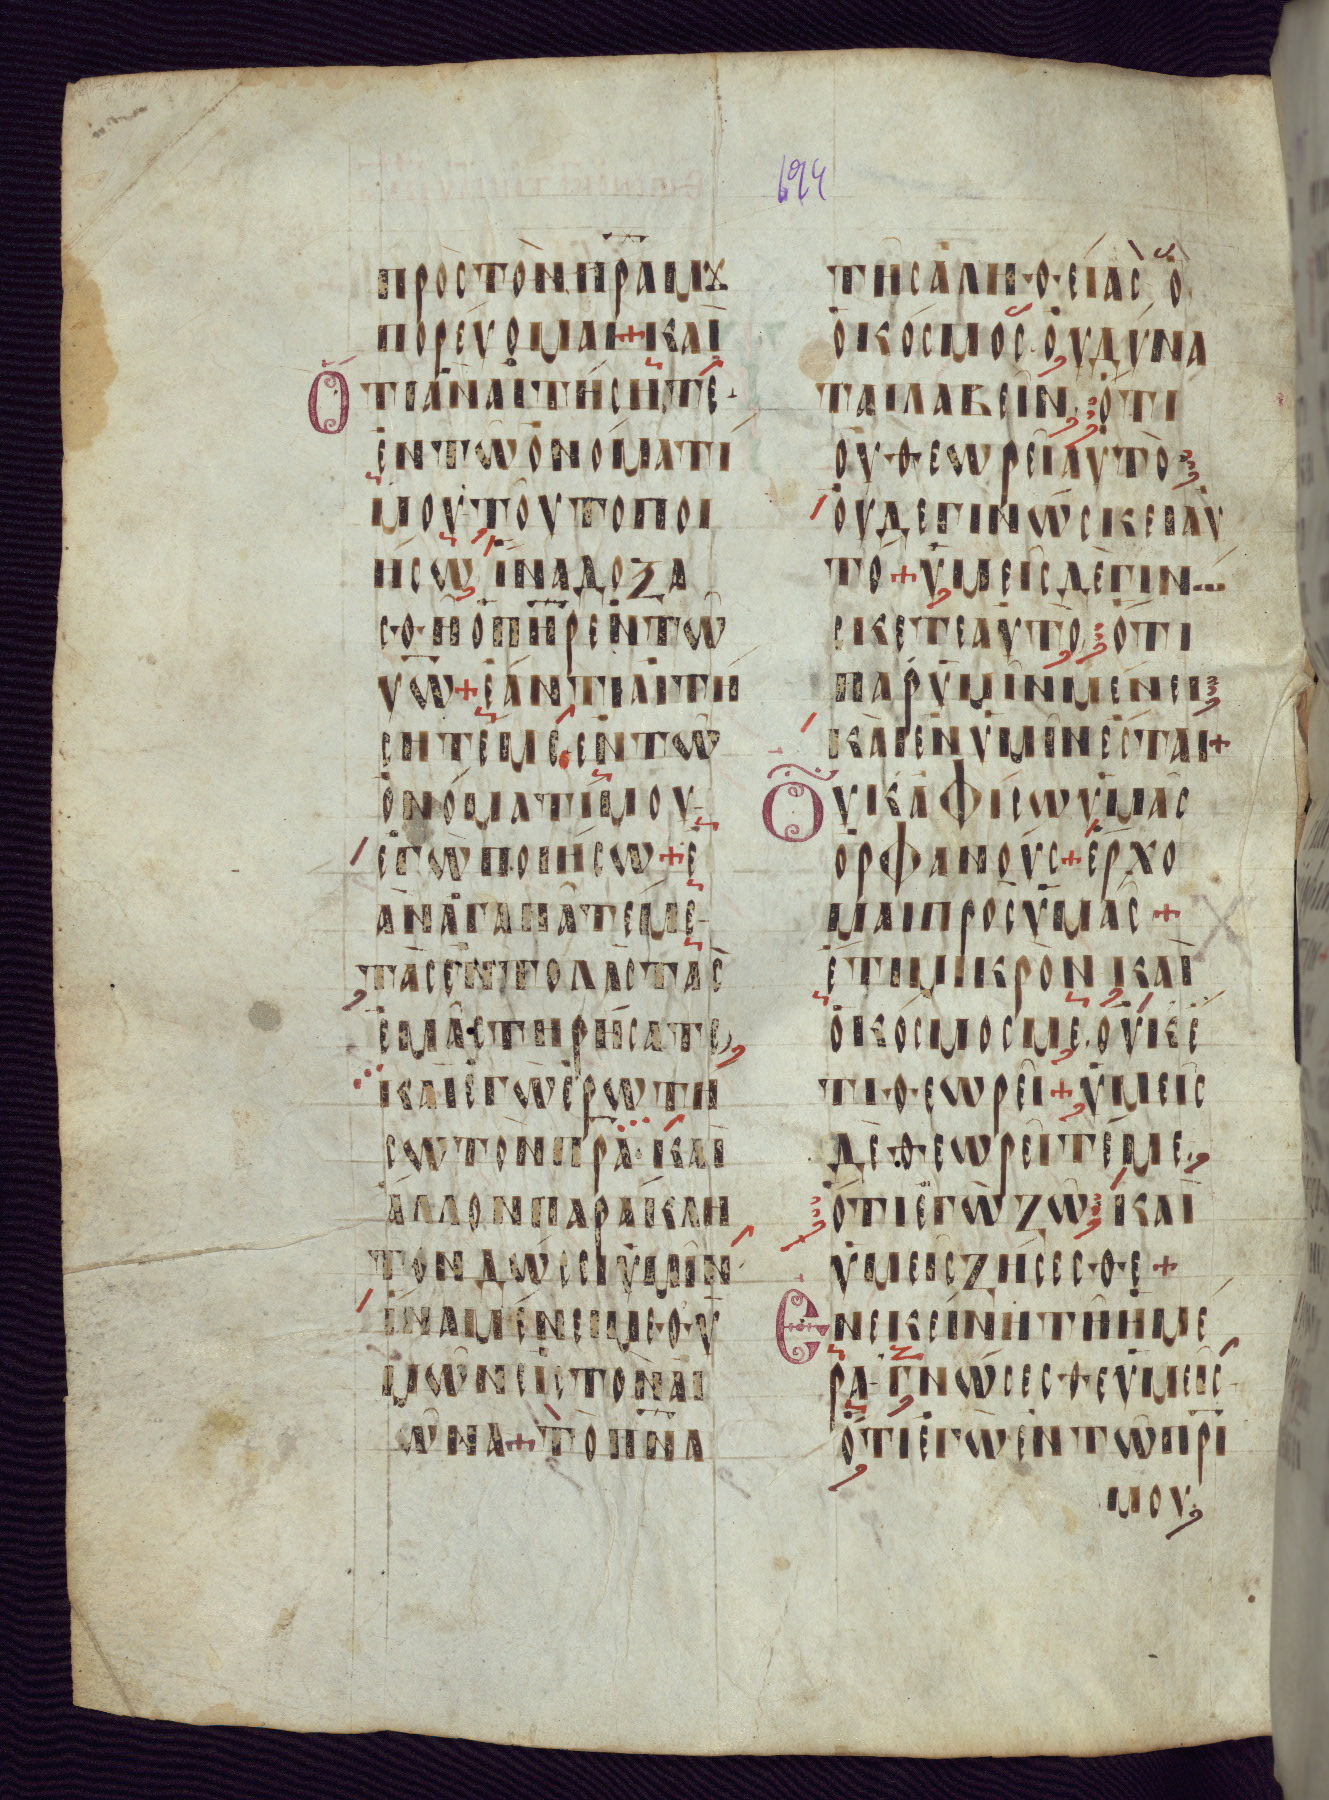 694
προστονπραμȣ
πορευομαι+και
Οτιαναιτησητε
εντωονοματι
μουτουτοποι
ησωιναδοξα
σθηοπηρεντω
υω+εαντιαιτη
σητεμεεντω
ονοματιμου
εγωποιησω+ε
αναγαπατεμε
τασεντολαστας
εμαστηρησατε
καιεγωερωτη
σωτονπρα·και
αλλονπαρακλη
τονδωσειυμιν
ιναμενειμεθυ
μωνειστοναι
ωνα+τοπνα
τησαληθειασ ο
οκοσμοσουδυνα
ταιλαβεινοτι
ουθεωρειαυτο
ουδεγινωσκειαυ
το+υμεισδεγιν
σκετεαυτοοτι
παρυμινμενει
καιενυμινεσται+
Ουκαφισωυμασ
ορφανουσ+ερχο
μαιπροσυμασ+
ετιμικρονκαι
οκοσμοσμε.ουκε
τιθεωρει+υμεισ
δεθεωρειτεμε
οτιεγωζωκαι
υμεισζησεσθε+
Ενεκεινητηημε
ραγνωσεσθευμεισ
οτιεγωεντωπρι
μου